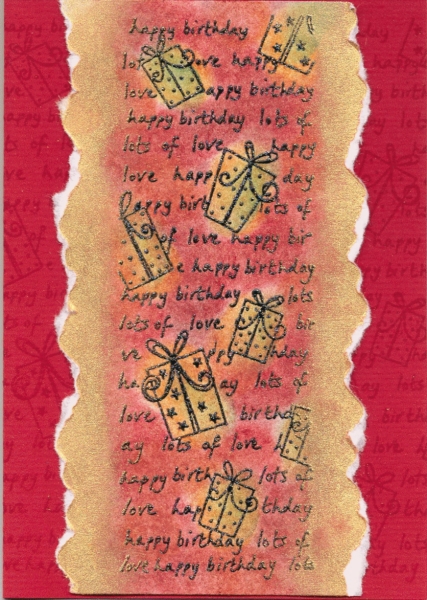 happy birthday
lot ove happy
love appy birthday
happy birthday lots of
lots of love happy
love happ day
appy birt lots of
of love happy bir
e happy birthday
happy birthday lots
lots of love bir
ve ppy hday
ha ay lots of
love birthd
ay lots of love h
happy birth lots of
love hap thday
happy birthday lots of
love happy birthday lots